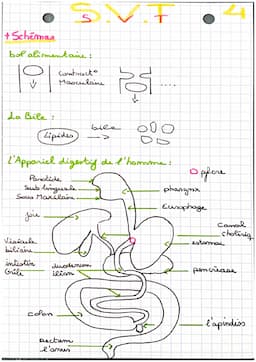 S.V.T 4
+ Schémas
bol alimentaire :
Contract°
Musculaire
La Bile :
lipides
bile
L'Appareil digestif de l'homme :
pylore
Parotide
Sub linguale
Sous Maxilaire
pharynx
Œusophage
foie
Canal
estomac
Vésicule
biliaire
intestin
Grêle
duodenum
iléon
pancréas
colon
l'apindios
Rectum
l'anus